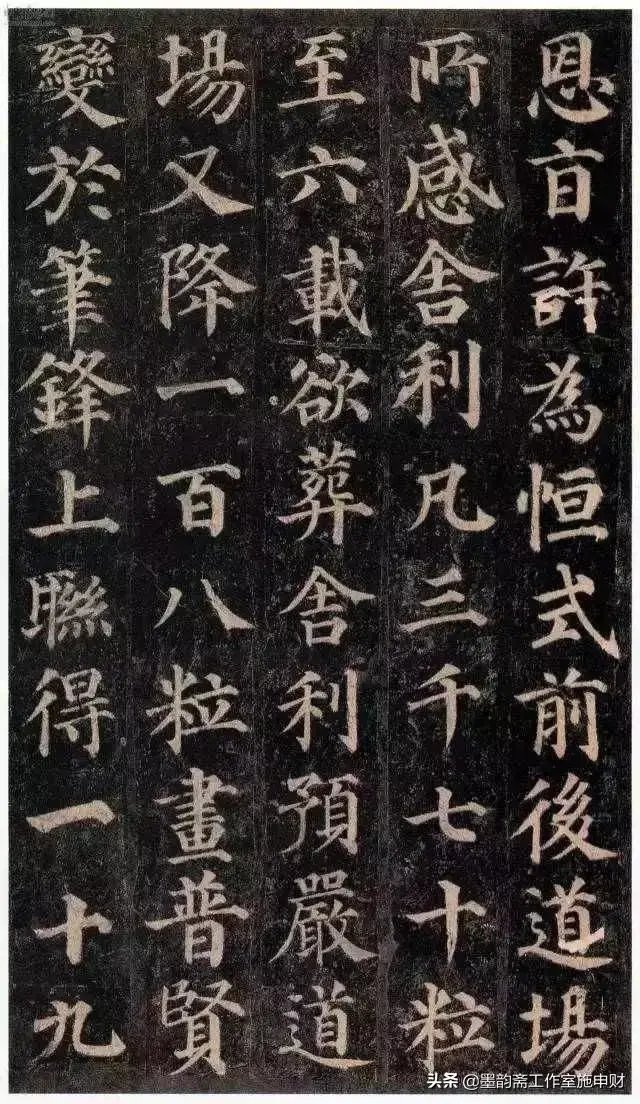 恩旨許為恒式前後道場
所感舍利凡三千七十粒
至六載欲葬舍利預嚴道
場又降一百八粒畫普賢
變於筆鋒上聯得一十九
头条 @墨韵斋工作室施申财